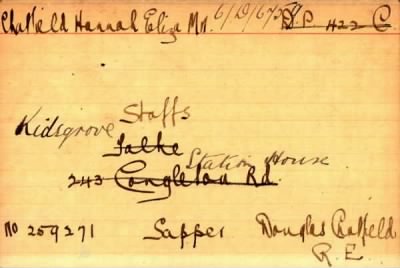 Chatfield Hannah Eliza Mrs. 6/D/6758 D.P. 422 C
Staffs
Kidsgrove
Talke
Station House
243 Congleton Rd.
No 259271 Sapper Douglas Chatfield
R.E.